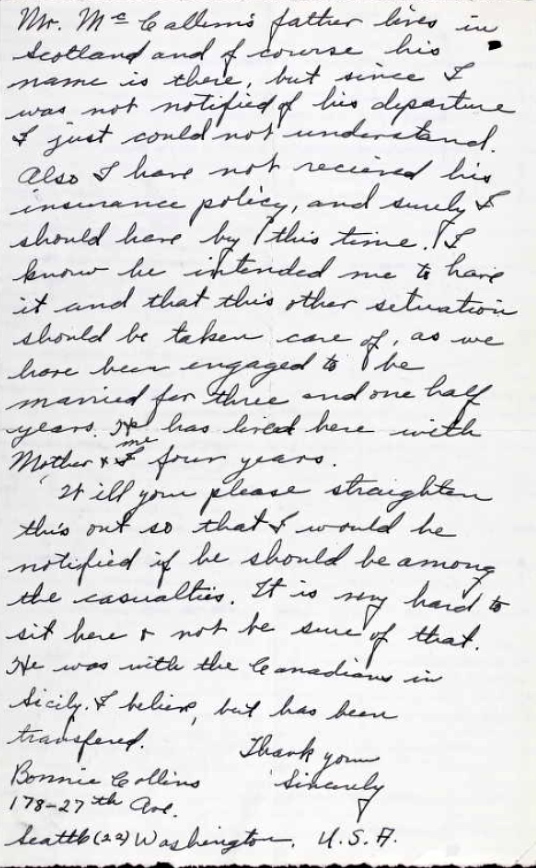 Mr. Mc Callum's father lives in
Scotland and of course his
name is there, but since I
was not notified of his departure
I just could not understand.
Also I have not recieved his
insurance policy, and surely I
should have by this time. I
know he intended me to have
it and that this other situation
should be taken care of, as we
have been engaged to be
married for three and one half
years. He has lived here with
Mother & I me four years.
Will you please straighten
this out so that I would be
notified if he should be among
the casualties. It is very hard to
sit here & not be sure of that.
He was with the Canadians in
Sicily. I believe, but has been
transfered.
Thank you
Bonnie Collins Sincerely
178-27th Ave.
Seattle (22) Washington. U.S.A.